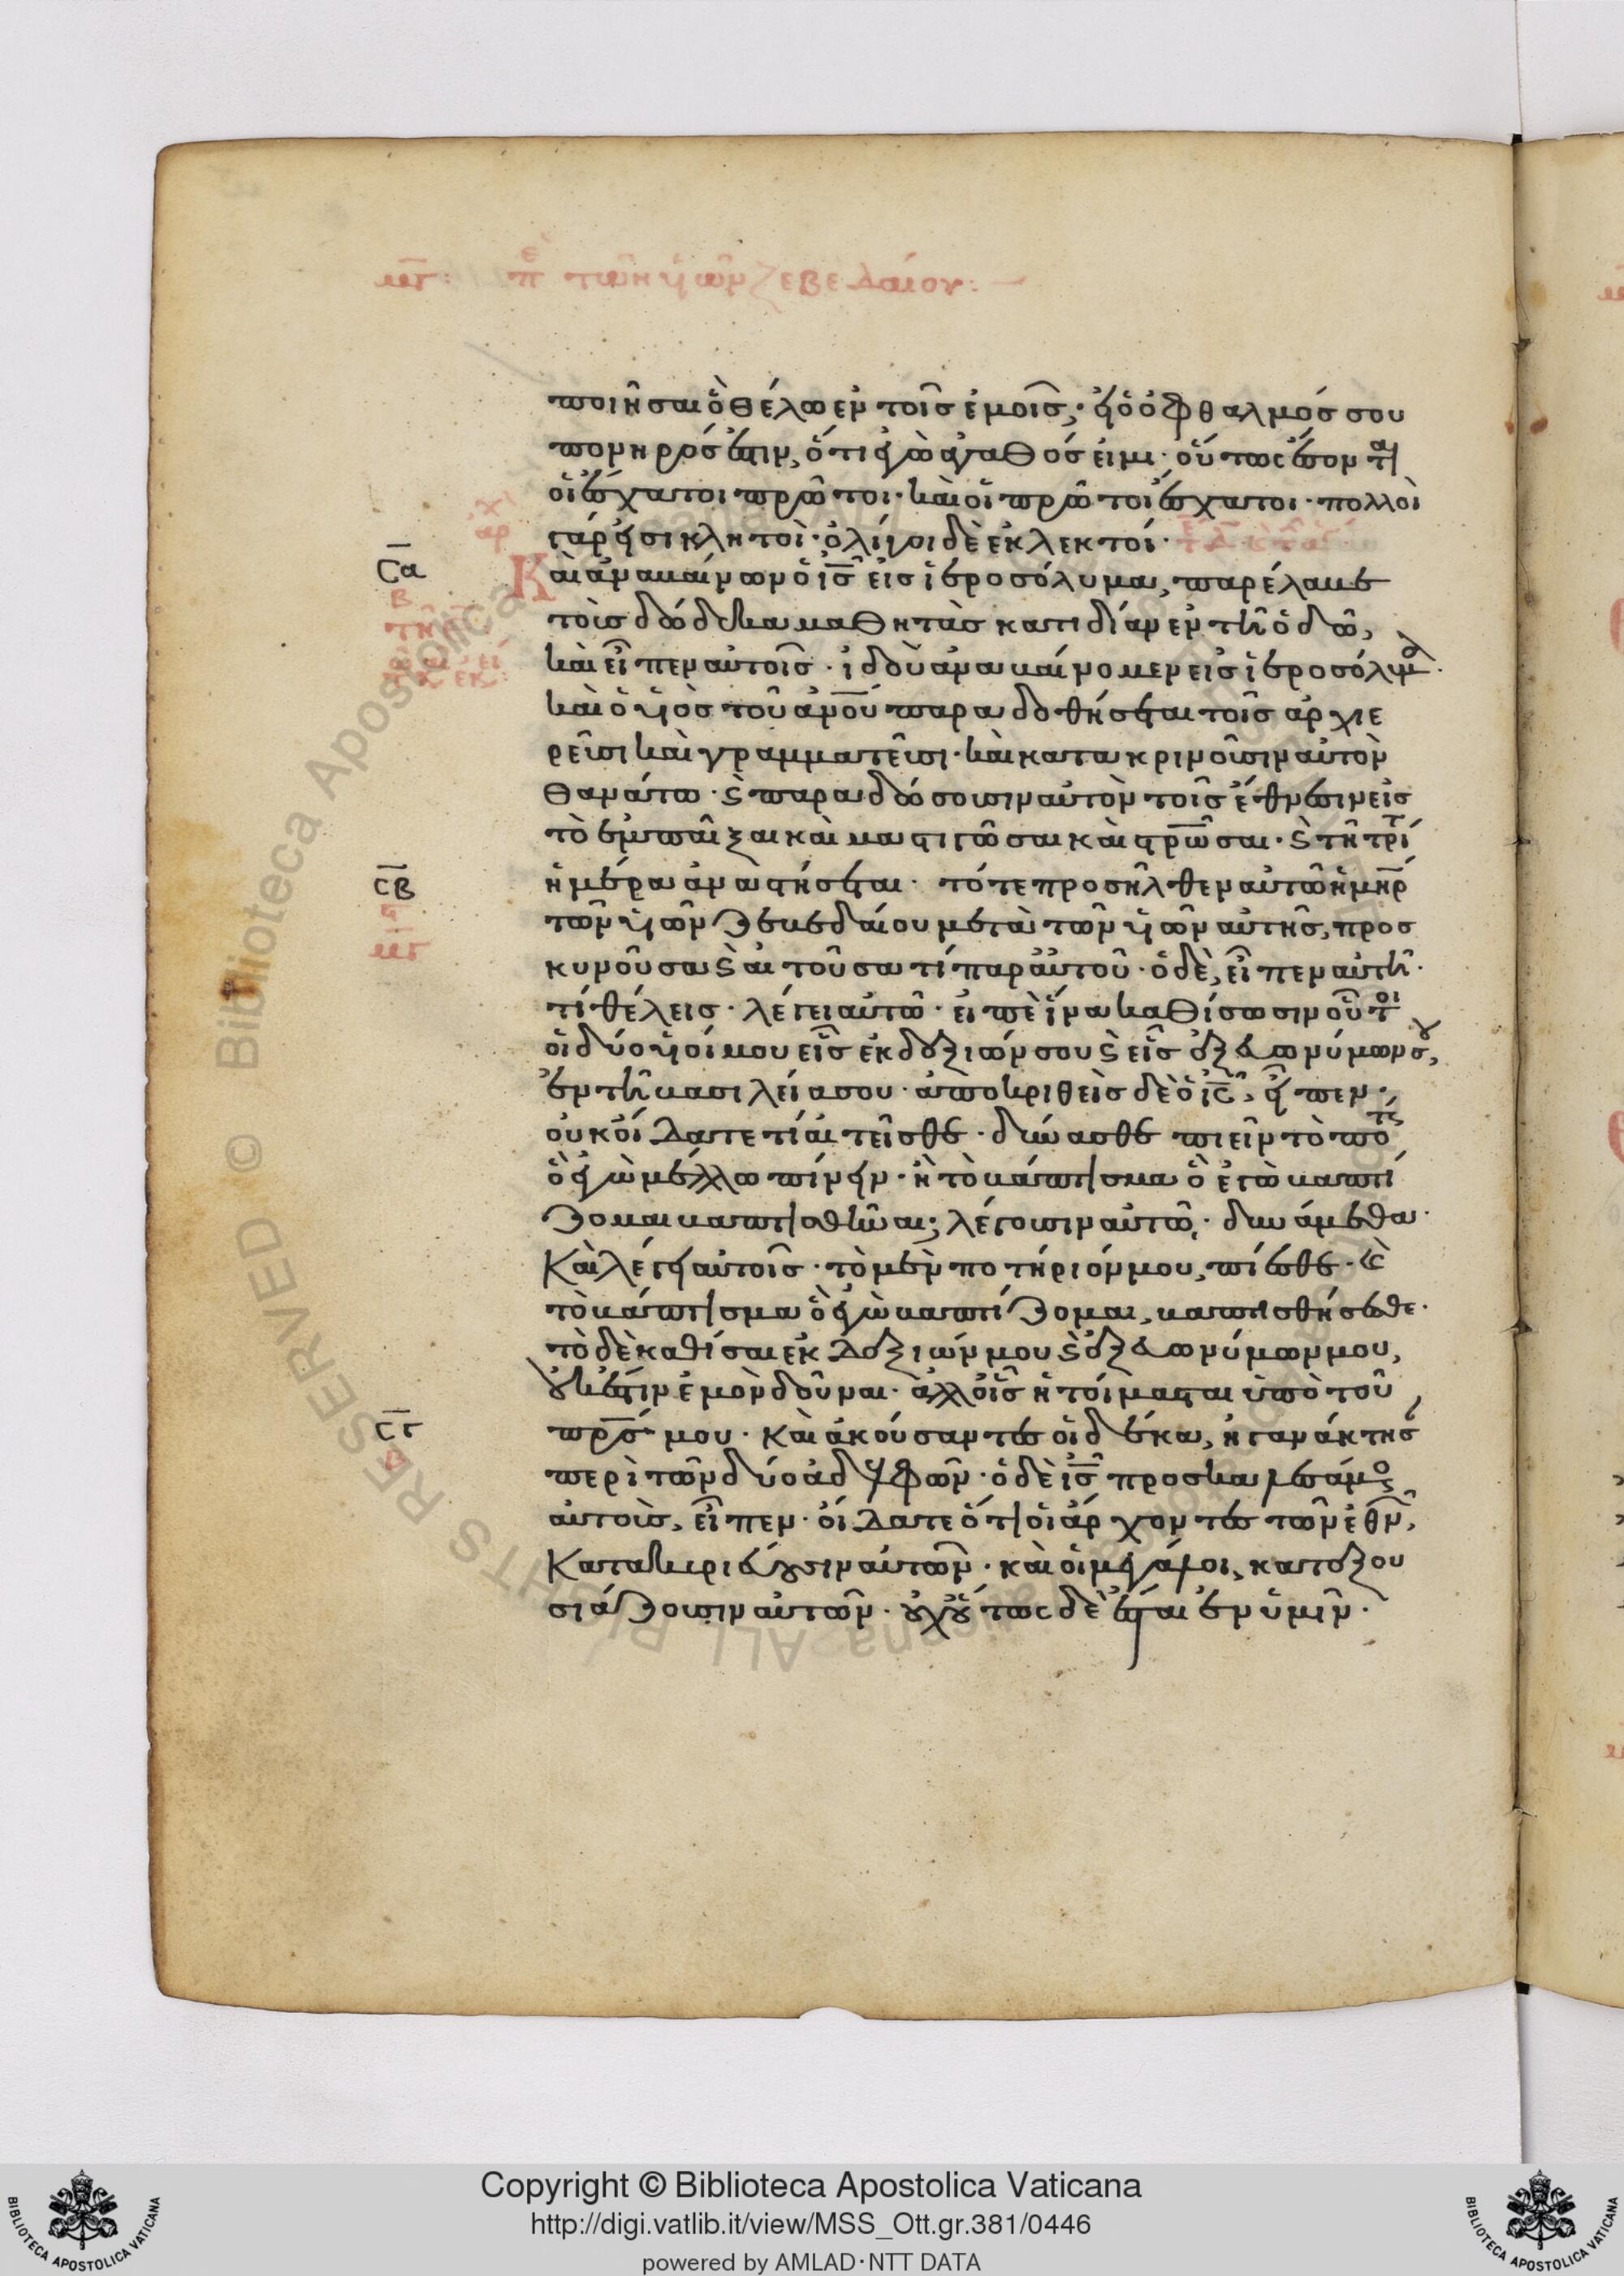 μγ: πε τῶν υἱῶν ζεβεδαίου:
ποιῆσαι ὃ θέλω ἐν τοῖς ἐμοῖς· εἰ ὁ ὀφθαλμός σου
πονηρός ἐστιν, ὅτι ἐγὼ ἀγαθός εἰμι· οὕτως ἔσοντ(αι)
οἱ ἔσχατοι πρῶτοι· καὶ οἱ πρῶτοι ἔσχατοι· πολλοὶ
γάρ εἰσι κλητοὶ· ὀλίγοι δὲ ἐκλεκτοί·
σα Καὶ ἀναβαίνων ὁ ις εἰς ἱεροσόλυμα, παρέλαβε
τοὺς δώδεκα μαθητὰς κατιδίαν ἐν τῆ ὁδῶ,
καὶ εἶπεν αὐτοῖς· ἰδοὺ ἀναβαίνομεν εἰς ἱεροσόλυμ(α)·
καὶ ὁ υἱὸς τοῦ ανου παραδοθήσεται τοῖς ἀρχιε
ρεῦσι καὶ γραμματεῦσι· καὶ κατακρινοῦσιν αὐτὸν
θανάτω· ϗ παραδώσουσιν αὐτὸν τοῖς ἔθνεσιν εἰς
τὸ ἐμπαῖξαι καὶ μαστιγῶσαι καὶ στρῶσαι· ϗ τῆ τρί(τη)
σβ ἡμέρα ἀναστήσεται· τότε προσῆλθεν αὐτῶ ἡ μηρ
τῶν υἱῶν Ζεβεδαίου μετὰ τῶν υἱῶν αὐτῆς, προσ
μγ
κυνοῦσα ϗ αἰτοῦσα τί παρ' αὐτοῦ· ὁ δὲ, εἶπεν αὐτῆ·
τί θέλεις· λέγει αὐτῶ· εἰπὲ ἵνα καθίσωσιν οὗτ(οι)
οἱ δύο υἱοί μου εἷς ἐκ δεξιῶν σου ϗ εἷς ἐξ εὐωνύμων σου,
ἐν τῆ βασιλεία σου· ἀποκριθεὶς δὲ ὁ ις, εἶπεν·
οὐκ οἴδατε τί αἰτεῖσθε· δύνασθε πιεῖν τὸ ποτ(ήριον)
ὃ ἐγὼ μέλλω πίνειν· ἢ τὸ βάπτισμα ὃ ἐγὼ βαπτί
ζομαι βαπτισθῆναι; λέγουσιν αὐτῶ· δυνάμεθα·
Καὶ λέγει αὐτοῖς· τὸ μὲν ποτήριόν μου, πίεσθε· ϗ
τὸ βάπτισμα ὃ ἐγὼ βαπτίζομαι, βαπτισθήσεσθε·
τὸ δὲ καθίσαι ἐκ δεξιῶν μου ϗ ἐξ εὐωνύμων μου,
οὐκ ἔστιν ἐμὸν δοῦναι· ἀλλ' οἷς ἡτοίμασται ὑπὸ τοῦ
σγ πρς μου· Καὶ ἀκούσαντες οἱ δέκα, ἠγανάκτησ(αν)
περὶ τῶν δύο ἀδελφῶν· ὁ δὲ ις προσκαλεσάμ(εν)ος
αὐτοὺς, εἶπεν· οἴδατε ὅτι οἱ ἄρχοντες τῶν ἐθν(ῶν),
Κατακυριεύουσιν αὐτῶν· καὶ οἱ μεγάλοι, κατεξου
σιάζουσιν αὐτῶν· οὐχ οὕτως δὲ ἔσται ἐν ὑμῖν·
© Biblioteca Apostolica Vaticana ALL RIGHTS RESERVED
Copyright © Biblioteca Apostolica Vaticana
http://digi.vatlib.it/view/MSS_Ott.gr.381/0446
powered by AMLAD·NTT DATA
BIBLIOTECA APOSTOLICA VATICANA
BIBLIOTECA APOSTOLICA VATICANA